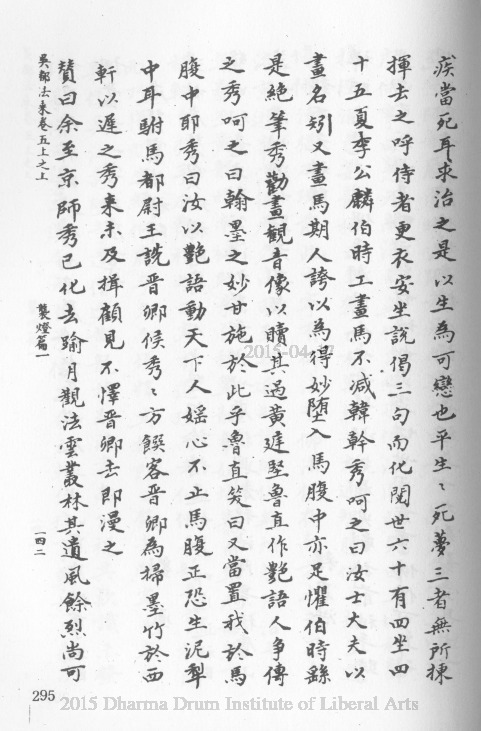 疾當死耳求治之是以生為可戀也平生生死夢三者無所揀
揮去之呼侍者更衣安坐說偈三句而化閱世六十有四坐四
十五夏李公麟伯時工畫馬不減韓幹秀呵之曰汝士大夫以
畫名矧又畫馬期人誇以為得妙墮入馬腹中亦足懼伯時繇
是絕筆秀勸畫觀音像以贖其過黃庭堅魯直作艷語人爭傳
之秀呵之曰翰墨之妙甘施於此乎魯直笑曰又當置我於馬
腹中耶秀曰汝以艷語動天下人婬心不止馬腹正恐生泥犁
中耳駙馬都尉王詵晉卿候秀〻方饌客晉卿為掃墨竹於西
軒以遲之秀來未及揖顧見不懌晉卿去即漫之
贊曰余至京師秀已化去踰月觀法雲叢林其遺風餘烈尚可
吳都法乘卷五上之上
襲燈篇一
一四二
295
2015-04-
2015 Dharma Drum Institute of Liberal Arts